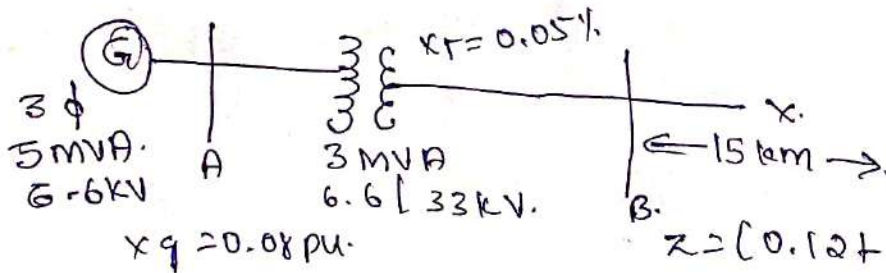 G
xT = 0.05%
3 ϕ
5 MVA.
6.6KV
A
3 MVA
6.6 | 33KV.
X.
← 15 km →
B.
xg = 0.08 pu.
z = (0.12+